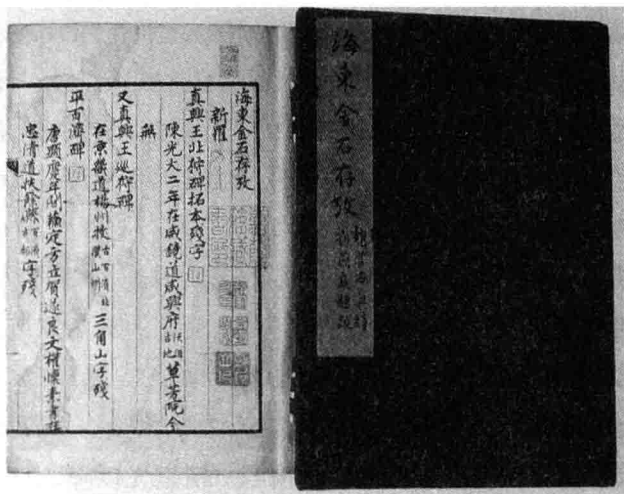 海東金石存攷
海東金石存攷
新羅
真興王北狩碑拓本殘字
陳光大二年在咸鏡道咸興府沃沮古地草芳院今
無
又真興王巡狩碑
在京畿道楊州牧古百濟北漢山州三角山字殘
平百濟碑
唐顯慶年定方立賀遂良文權懷素書在
忠清道扶餘縣百濟字殘